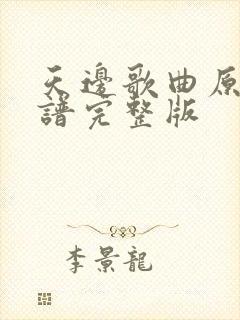 天邊歌曲原
譜完整版
李景龍